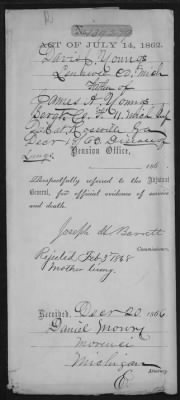 No 139270
ACT OF JULY 14, 1862.
David Young
Lenawee Co. Mich
Father of
James H Young
Co. F. 11 Mich Inf
Ga
Pension Office,
186 .
Respectfully referred to the Adjutant
General, for official evidence of service
and death.
Joseph H Barrett
Commissioner.
Rejected Feb 5 1868
Mother living.
Received, Decr 20 1866
Daniel Mowry
Morenci
Michigan
Attorney